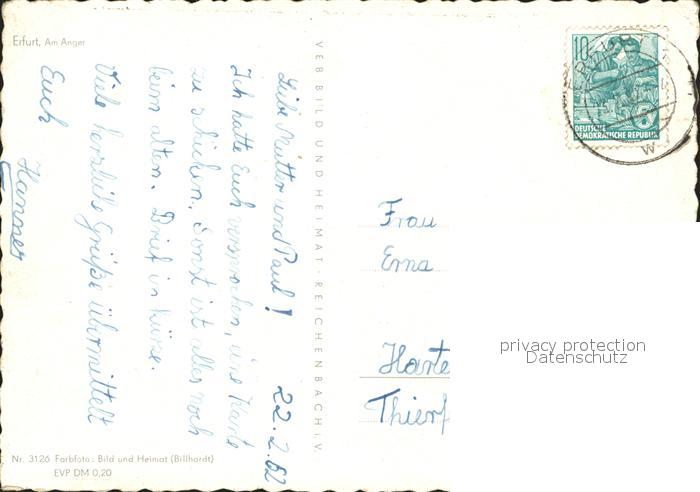 Erfurt, Am Anger
22.2.62
Liebe Mutter und Paul!
Ich hatte Euch versprochen, eine Karte
zu schicken. Sonst ist alles noch
beim alten. Brief in Kürze.
Viele herzliche Grüße übermittelt
Euch
Hannes
Nr. 3126 Farbfoto: Bild und Heimat (Billhardt)
EVP DM 0,20
VEB BILD UND HEIMAT · REICHENBACH i. V.
10
DEUTSCHE
DEMOKRATISCHE REPUBLIK
ERFURT
W
Frau
Erna
Harte
Thierf
privacy protection
Datenschutz